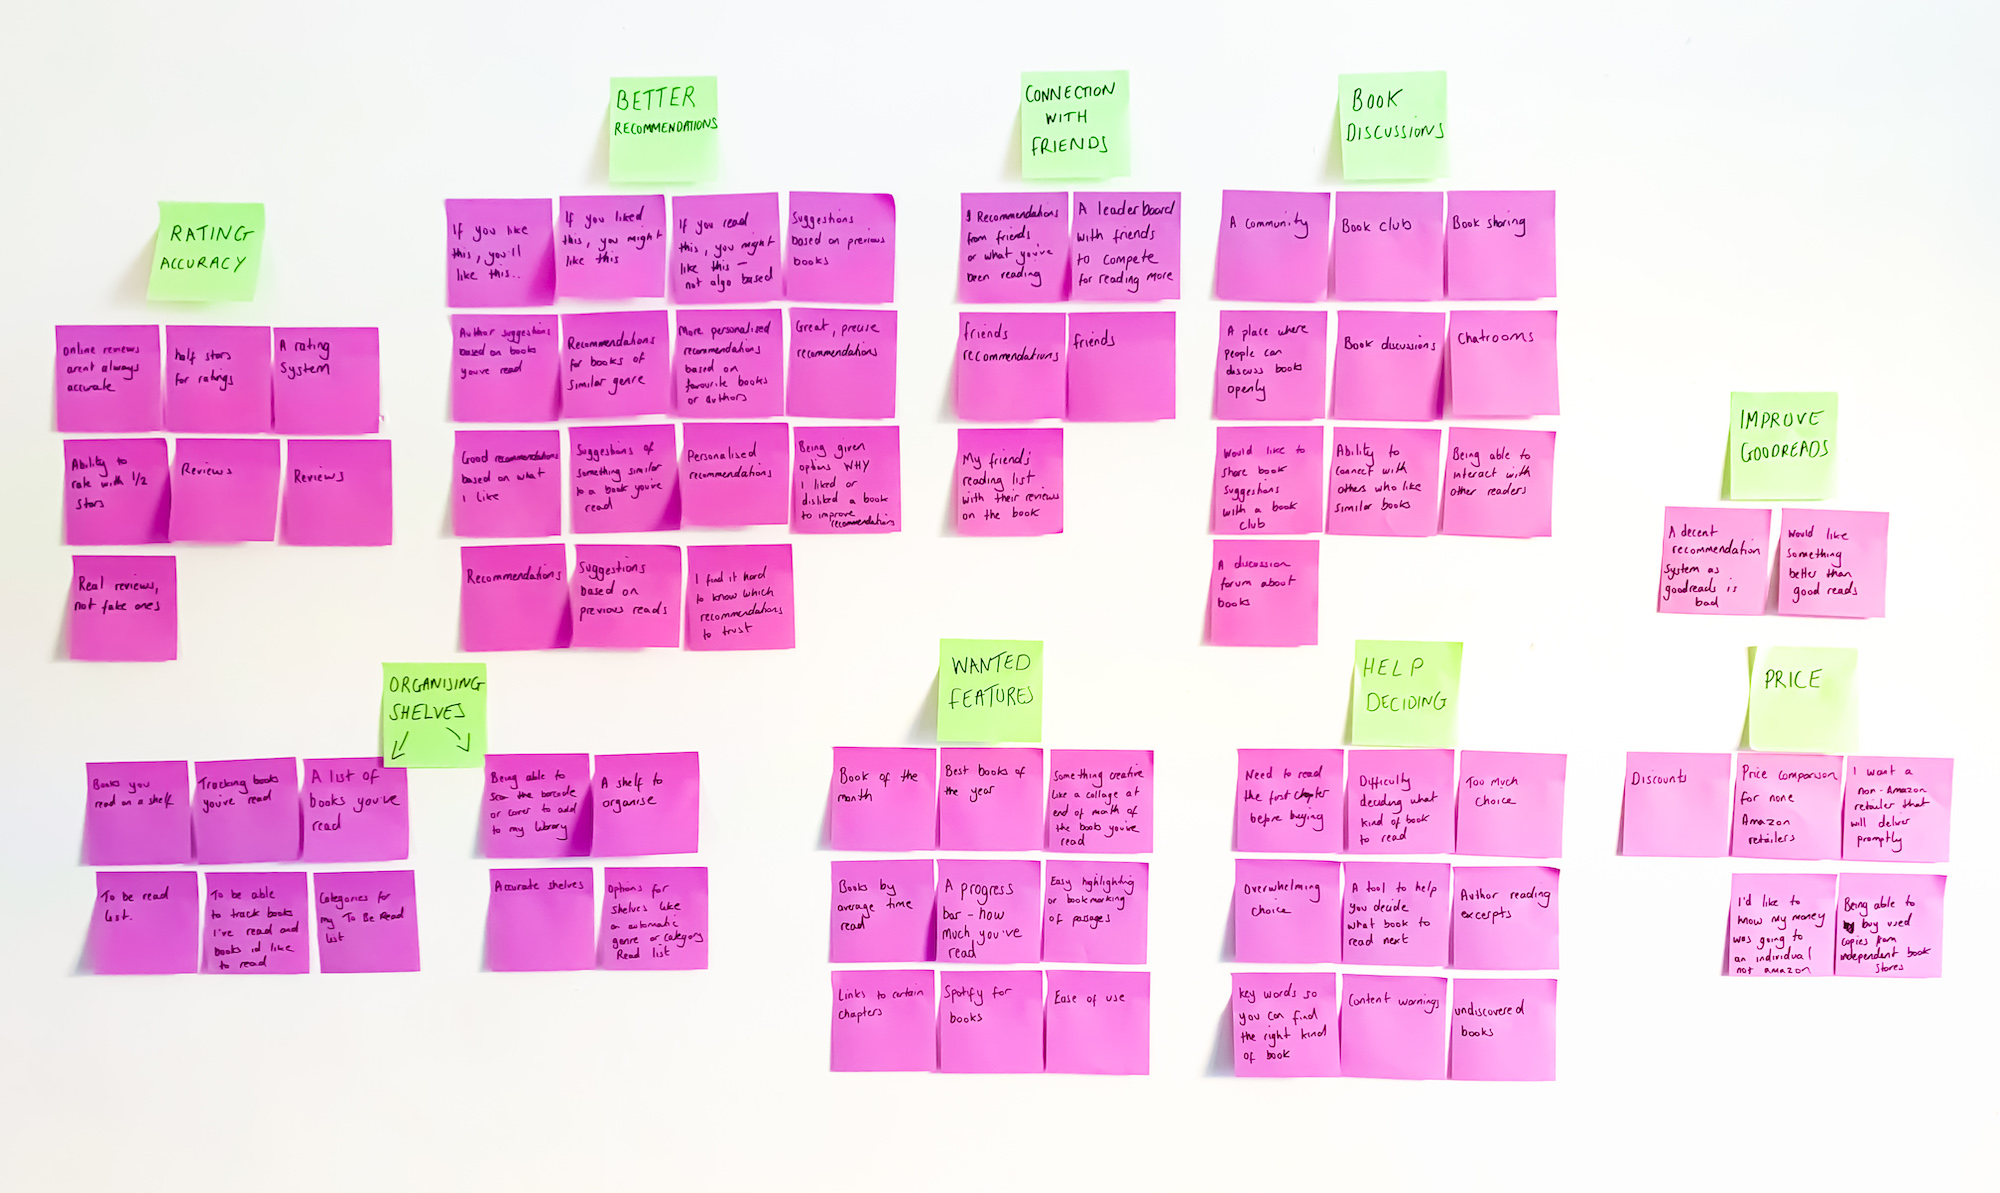 RATING
ACCURACY
online reviews
arent always
accurate
half stars
for ratings
A rating
System
Ability to
rate with 1/2
stars
Reviews
Reviews
Real reviews,
not fake ones
BETTER
RECOMMENDATIONS
If you like
this, you'll
like this..
If you liked
this, you might
like this
If you read
this, you might
like this –
not algo based
Suggestions
based on previous
books
Author suggestions
based on books
you've read
Recommendations
for books of
similar genre
More personalised
recommendations
based on
favourite books
or authors
Great, precise
recommendations
Good recommendations
based on what
I like
Suggestions of
something similar
to a book you've
read
Personalised
recommendations
Being given
options WHY
I liked or
disliked a book
to improve
recommendations
Recommendations
Suggestions
based on
previous reads
I find it hard
to know which
recommendations
to trust
CONNECTION
WITH
FRIENDS
Recommendations
from friends
or what you've
been reading
A leaderboard
with friends
to compete
for reading more
friends
recommendations
friends
My friends
reading list
with their reviews
on the book
BOOK
DISCUSSIONS
A community
Book club
Book sharing
A place where
people can
discuss books
openly
Book discussions
Chatrooms
Would like to
share book
suggestions
with a book
club
Ability to
connect with
others who like
similar books
Being able to
interact with
other readers
A discussion
forum about
books
IMPROVE
GOODREADS
A decent
recommendation
system as
goodreads is
bad
Would like
something
better than
good reads
ORGANISING
SHELVES
Books you
read on a shelf
Tracking books
you've read
A list of
books you've
read
To be read
list.
To be able
to track books
I've read and
books id like
to read
Categories for
my To Be Read
list
Being able to
scan the barcode
or cover to add
to my library
A shelf to
organise
Accurate shelves
Options for
shelves like
an automatic
genre or category
Read list
WANTED
FEATURES
Book of the
month
Best books of
the year
Something creative
like a collage at
end of month of
the books you've
read
Books by
average time
read
A progress
bar – how
much you've
read
Easy highlighting
or bookmarking
of passages
Links to certain
chapters
Spotify for
books
Ease of use
HELP
DECIDING
Need to read
the first chapter
before buying
Difficulty
deciding what
kind of book
to read
Too much
choice
Overwhelming
choice
A tool to help
you decide
what book to
read next
Author reading
excerpts
key words so
you can find
the right kind
of book
Content warnings
undiscovered
books
PRICE
Discounts
Price comparison
for none
Amazon
retailers
I want a
non-Amazon
retailer that
will deliver
promptly
I'd like to
know my money
was going to
an individual
not amazon
Being able to
buy used
copies from
independent book
stores